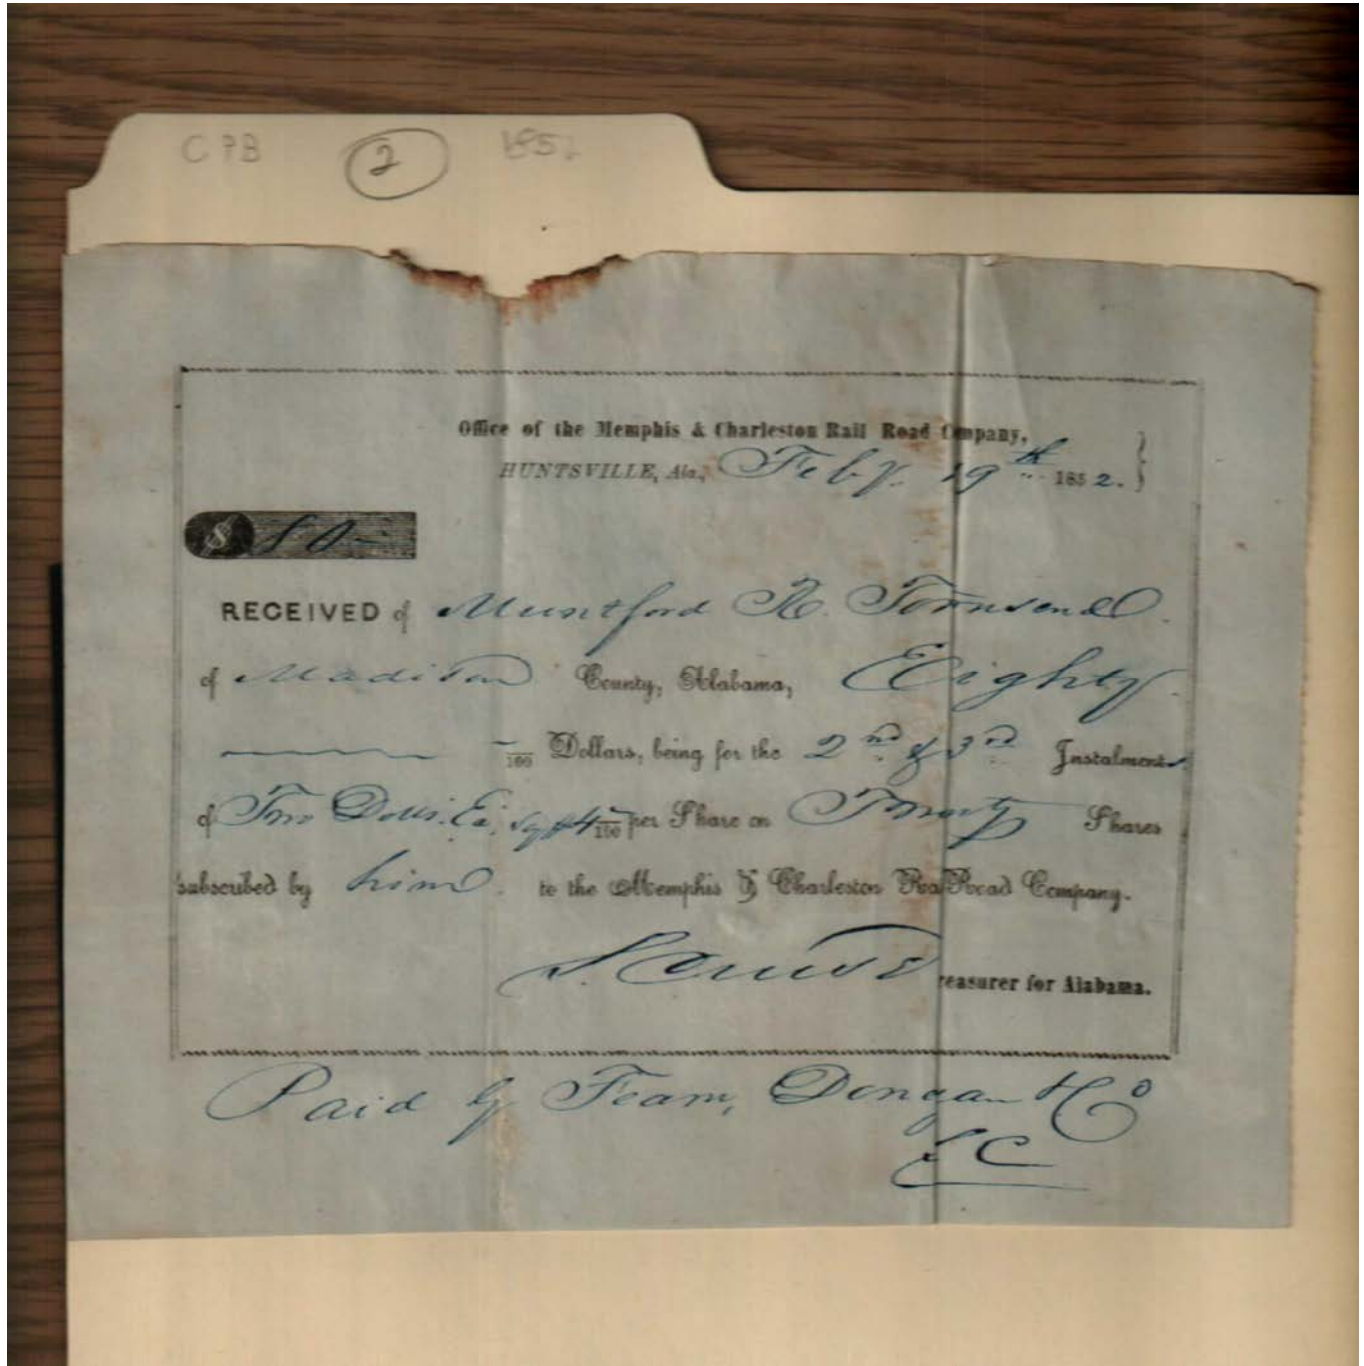 CPB 2 1852
Office of the Memphis & Charleston Rail Road Company,
HUNTSVILLE, Ala., Feby. 19th 1852.
$ 80-
RECEIVED of Muntford R. Townsend.
of Madison County, Alabama, Eighty
/100 Dollars, being for the 2nd & 3rd Instalments
of Two Dolls. Ea. $4 /100 per Share on Twenty Shares
subscribed by him. to the Memphis & Charleston Rail Road Company.
S. Cruse Treasurer for Alabama.
Paid by Fearn, Donegan & Co
S C